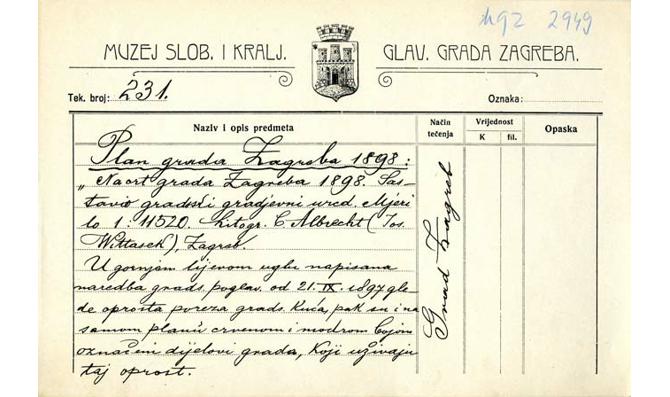 mgz 2949
MUZEJ SLOB. I KRALJ. GLAV. GRADA ZAGREBA.
Tek. broj: 231. Oznaka:
Naziv i opis predmeta
Način tečenja
Vrijednost
K fil.
Opaska
Plan grada Zagreba 1898:
„Nacrt grada Zagreba 1898. Sas-
tavio gradski gradjevni ured. Mjeri
lo 1:11520. Litogr. C. Albrecht (Jos.
Wittasek), Zagreb.
U gornjem lijevom uglu napisana
naredba grads. poglav. od 21. IX. 1897 gle
de oprosta poreza grads. kuća, pak su i na
samom planu crvenom i modrom bojom
označeni dijelovi grada, koji uživaju
taj oprost.
Grad Zagreb